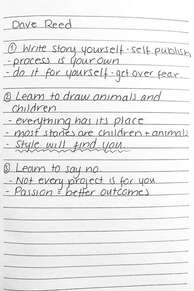 Dave Reed
① Write story yourself - self publish
- process is your own
- do it for yourself - get over fear
② Learn to draw animals and
children
- everything has its place
- most stories are children + animals
- Style will find you
③ Learn to say no
- Not every project is for you
- Passion = better outcomes